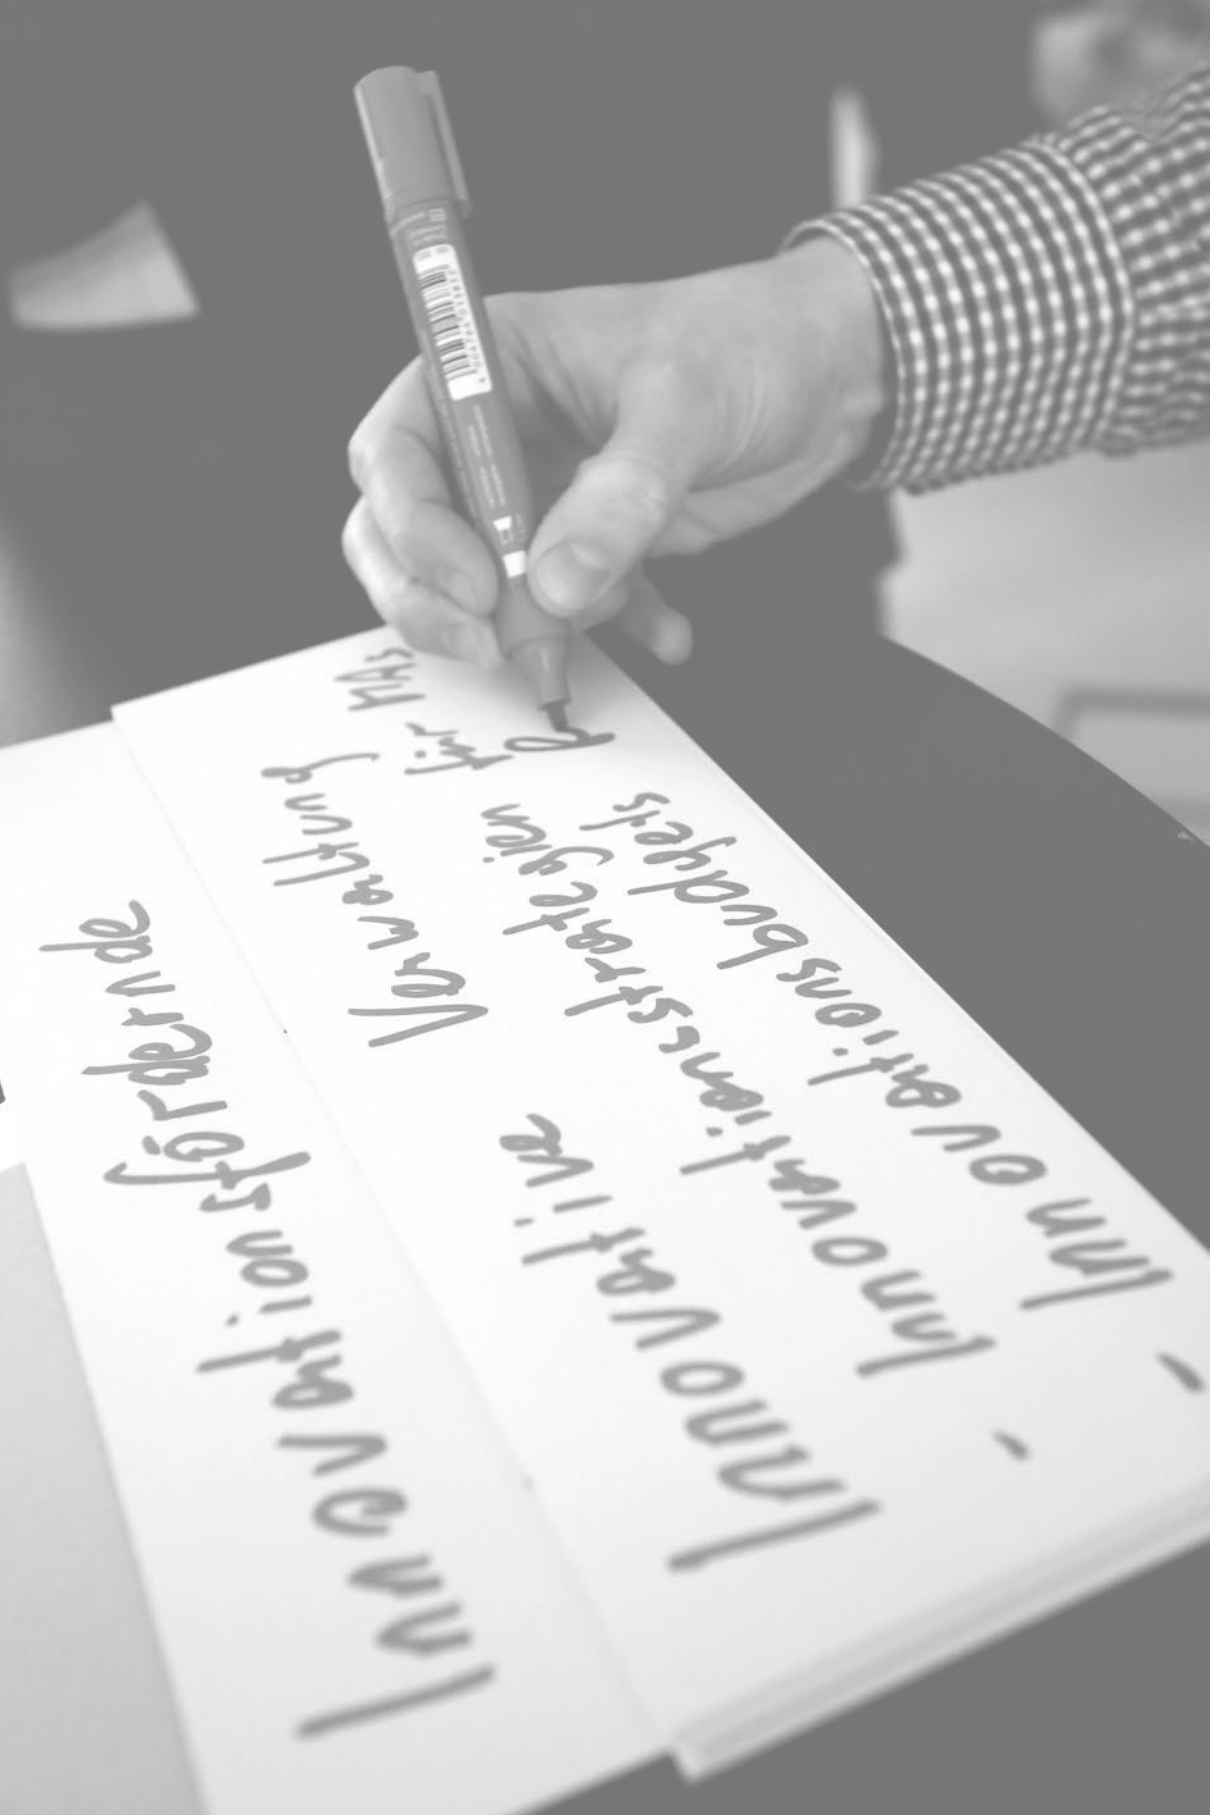 Innovationsfördernde
Innovative Verwaltung
- Innovationsstrategien für MAs
- Innovationsbudgets